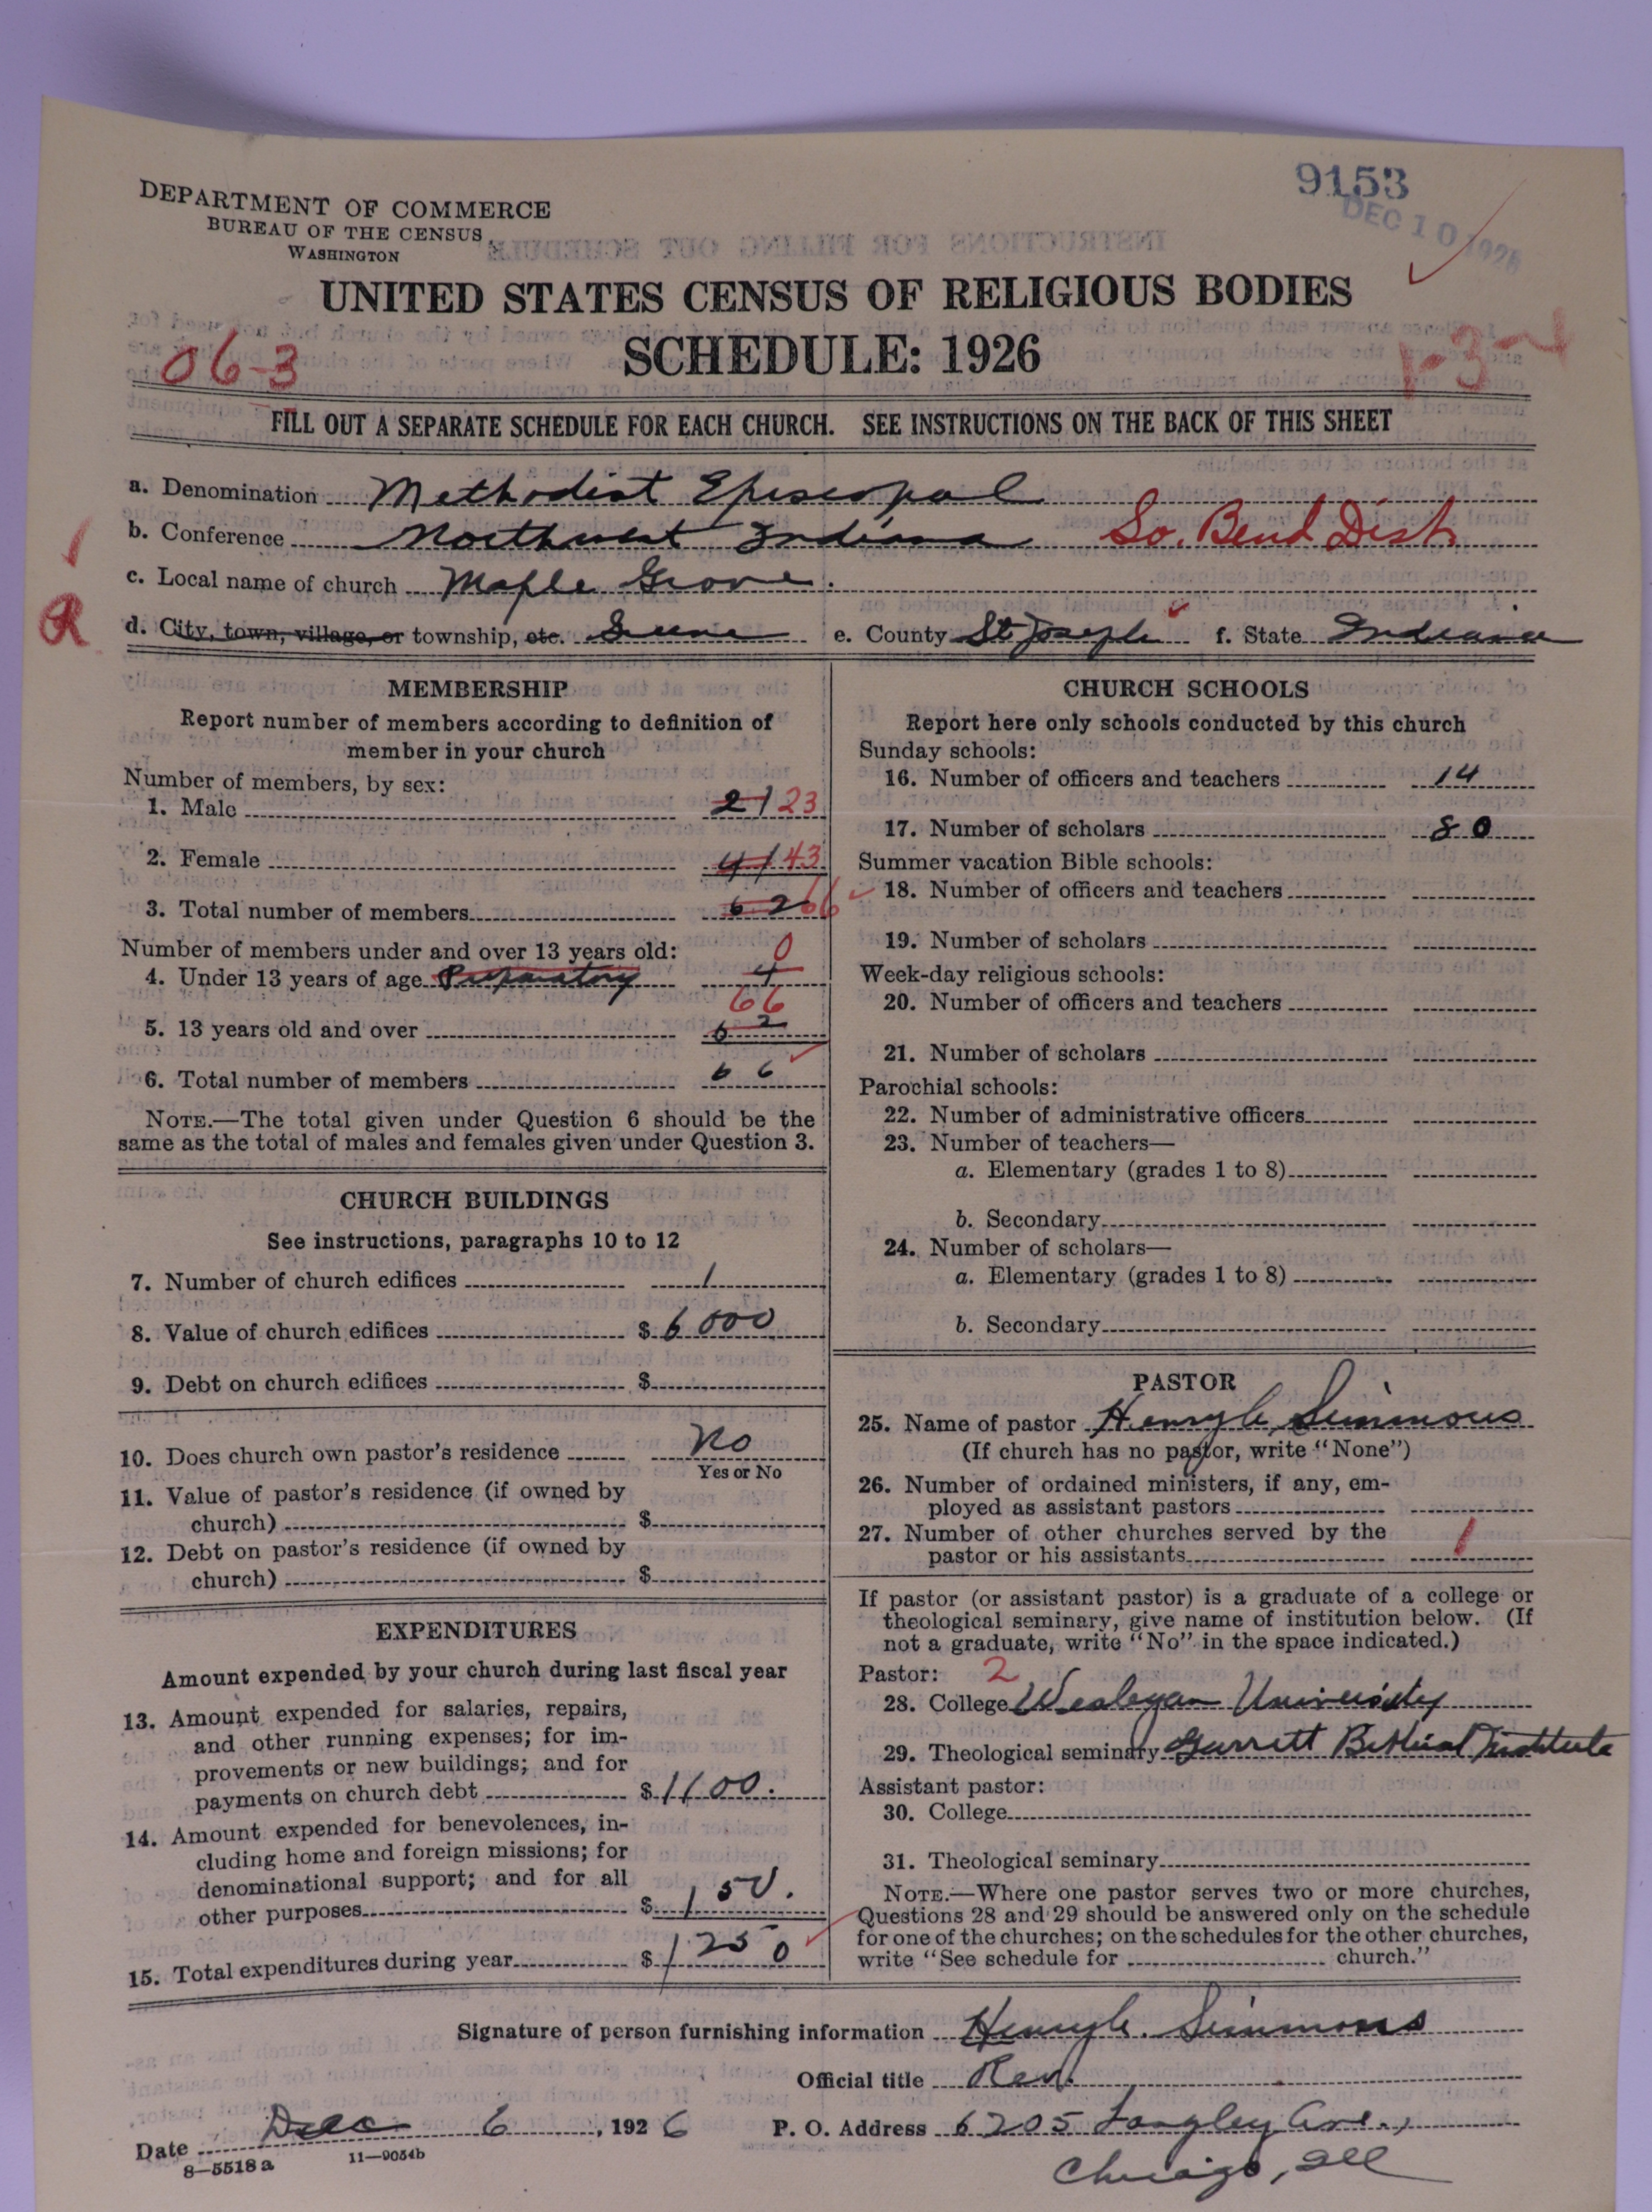 9153
DEC 10 1926
DEPARTMENT OF COMMERCE
BUREAU OF THE CENSUS
WASHINGTON
UNITED STATES CENSUS OF RELIGIOUS BODIES
SCHEDULE: 1926
06-3
1-3-4
FILL OUT A SEPARATE SCHEDULE FOR EACH CHURCH. SEE INSTRUCTIONS ON THE BACK OF THIS SHEET
a. Denomination Methodist Episcopal
b. Conference Northwest Indiana So. Bend Dist.
c. Local name of church Maple Grove.
R d. City, town, village, or township, etc. Greene e. County St. Joseph f. State Indiana
MEMBERSHIP
Report number of members according to definition of
member in your church
Number of members, by sex:
1. Male 21 23
2. Female 41 43
3. Total number of members 62 66
Number of members under and over 13 years old:
0
4. Under 13 years of age Preparatory 4
66
5. 13 years old and over 62
6. Total number of members 66
NOTE.—The total given under Question 6 should be the
same as the total of males and females given under Question 3.
CHURCH BUILDINGS
See instructions, paragraphs 10 to 12
7. Number of church edifices 1
8. Value of church edifices $ 6000
9. Debt on church edifices $
10. Does church own pastor's residence No
Yes or No
11. Value of pastor's residence (if owned by
church) $
12. Debt on pastor's residence (if owned by
church) $
EXPENDITURES
Amount expended by your church during last fiscal year
13. Amount expended for salaries, repairs,
and other running expenses; for im-
provements or new buildings; and for
payments on church debt $ 1100.
14. Amount expended for benevolences, in-
cluding home and foreign missions; for
denominational support; and for all
other purposes $ 150.
15. Total expenditures during year $ 1250
CHURCH SCHOOLS
Report here only schools conducted by this church
Sunday schools:
16. Number of officers and teachers 14
17. Number of scholars 80
Summer vacation Bible schools:
18. Number of officers and teachers
19. Number of scholars
Week-day religious schools:
20. Number of officers and teachers
21. Number of scholars
Parochial schools:
22. Number of administrative officers
23. Number of teachers—
a. Elementary (grades 1 to 8)
b. Secondary
24. Number of scholars—
a. Elementary (grades 1 to 8)
b. Secondary
PASTOR
25. Name of pastor Henry C. Simmons
(If church has no pastor, write "None")
26. Number of ordained ministers, if any, em-
ployed as assistant pastors
27. Number of other churches served by the
pastor or his assistants 1
If pastor (or assistant pastor) is a graduate of a college or
theological seminary, give name of institution below. (If
not a graduate, write "No" in the space indicated.)
Pastor: 2
28. College Wesleyan University
29. Theological seminary Garrett Biblical Institute
Assistant pastor:
30. College
31. Theological seminary
NOTE.—Where one pastor serves two or more churches,
Questions 28 and 29 should be answered only on the schedule
for one of the churches; on the schedules for the other churches,
write "See schedule for church."
Signature of person furnishing information Henry C. Simmons
Official title Rev.
Date Dec 6, 1926 P. O. Address 6205 Langley Ave.,
8—5518 a 11—9054b
Chicago, Ill